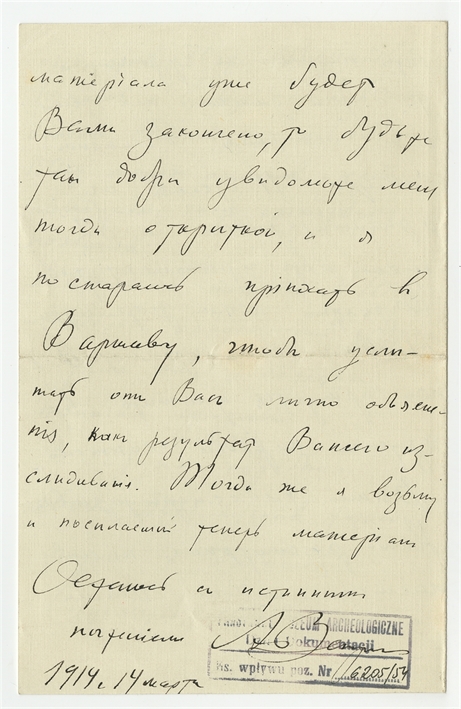 матеріала уже будет
Вами закончено, то будьте
так добры увидомьте меня
тогда открыткой, и я
постараюсь пріѣхать в
Варшаву, чтобы услы-
шать от Вас лично объясне-
нія, как результат Вашего из-
слидиванія. Тогда же я возьму
и посылаемый теперь матеріал
Остаюсь с истинным
почтением
MUZEUM ARCHEOLOGICZNE
Dział Dokumentacji
Ks. wpływu poz. Nr 6205/54
1914 г. 14 марта